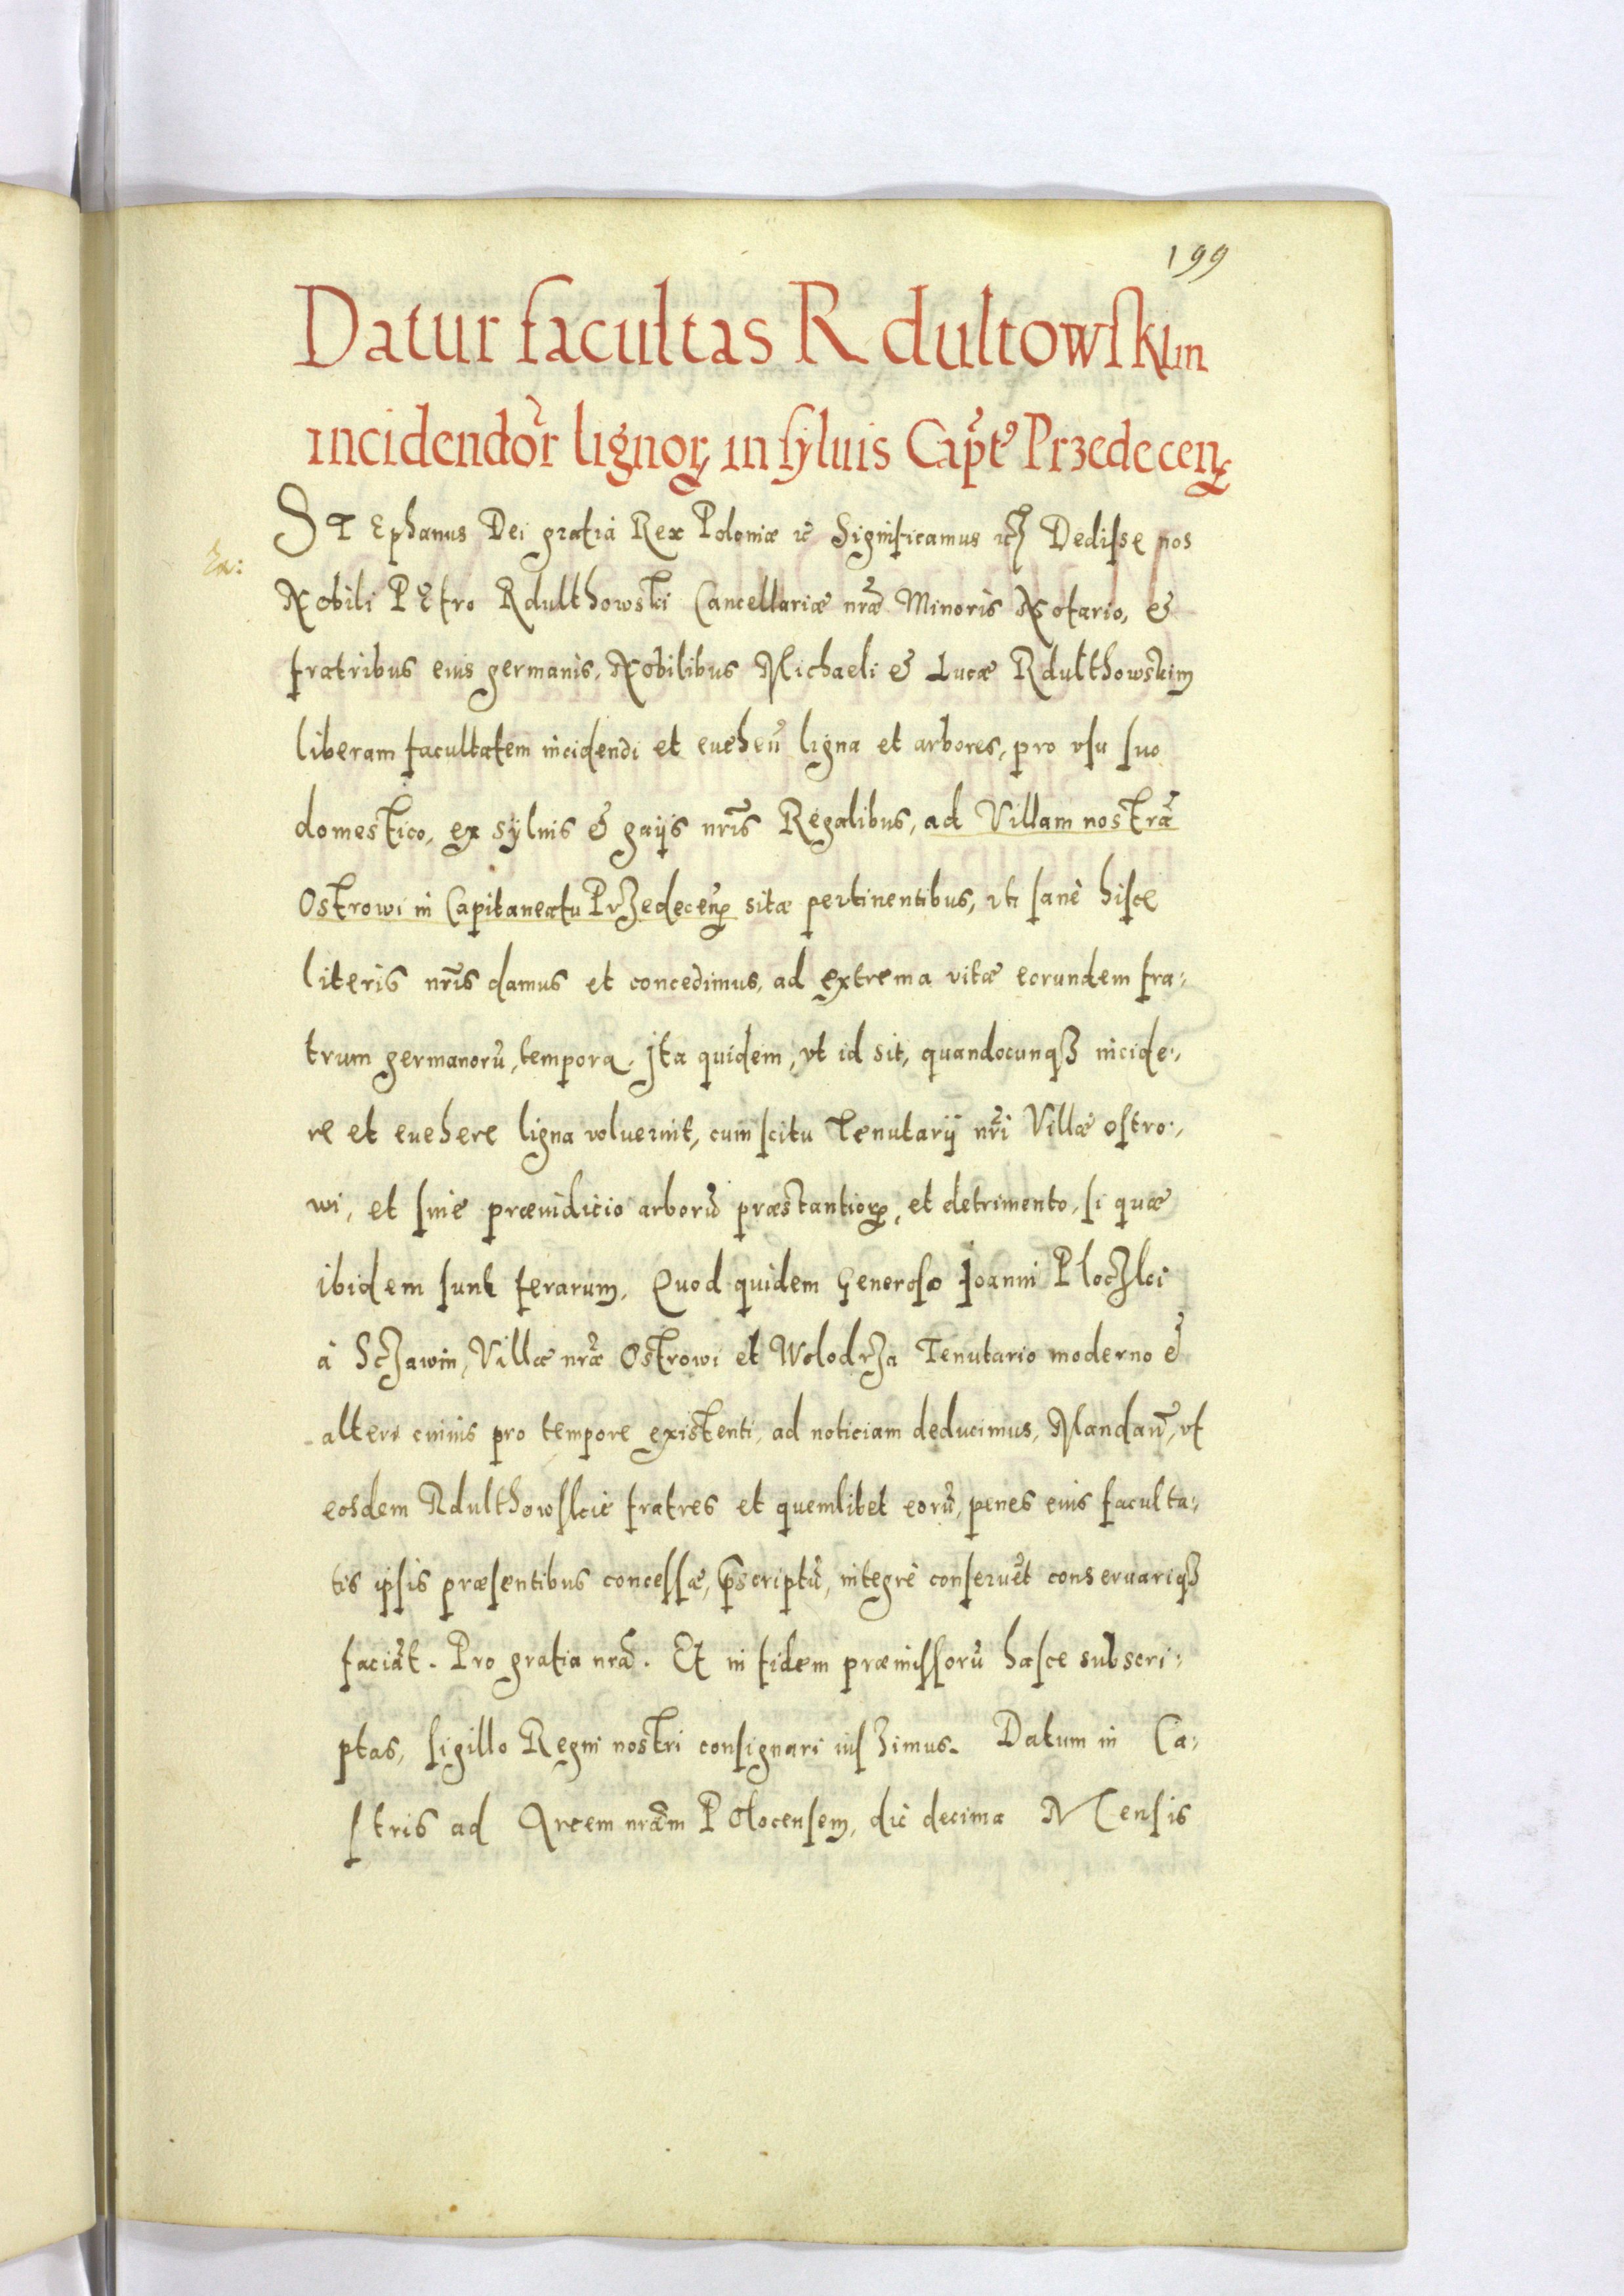 199
Datur facultas Rdultowſkim
incidendor̃ lignoꝝ in ſyluis Capt̃ꝰ Przedecenꝝ
STEphanus Dei gratia Rex Poloniæ ꝛc̃ Significamus ꝛc̃ Dedisse nos
Nobili PEtro Rdulthowski Cancellariæ nr̃æ Minoris Notario, &
fratribus eius germanis, Nobilibus Michaeli & Lucæ Rdulthowskim
liberam facultatem incidendi et eueheñ ligna et arbores, pro vſu ſuo
domestico, ex sÿluis & gaijs nr̃is Regalibus, ad Villam nostrã
Ostrowi in Capitaneatu Przedeceñꝝ sitæ pertinentibus, vti ſanè hiſce
literis nr̃is damus et concedimus, ad extrema vitæ eorundem fra:
trum germanorũ, tempora. Ita quidem, vt id sit, quandocunqꝫ incide:
re et euehere ligna voluerint, cum ſcitu Tenutarij nr̃i Villæ oſtro:
wi, et ſine præiudicio arborũ præstantioꝝ, et detrimento, ſi quæ
ibidem ſunt ferarum, Quod quidem Generoſo Joanni Ploczki
à Sczawin, Villæ nr̃æ Ostrowi et Wolodrza Tenutario moderno &
alteri cuiuis pro tempore existenti, ad noticiam deducimus, Mandañ, vt
eosdem Rdulthowſkie fratres et quemlibet eorũ, penes eius faculta:
tis ipſis præſentibus conceſſæ, p̃scriptũ, integrè conſeruẽt conseruariqꝫ
faciãt. Pro gratia nr̃a. Et in fidem præmiſſorũ haſce subscri:
ptas, ſigillo Regni nostri conſignari iuſzimus. Datum in Ca:
ſtris ad Arcem nr̃am Polocenſem, die decima Menſis